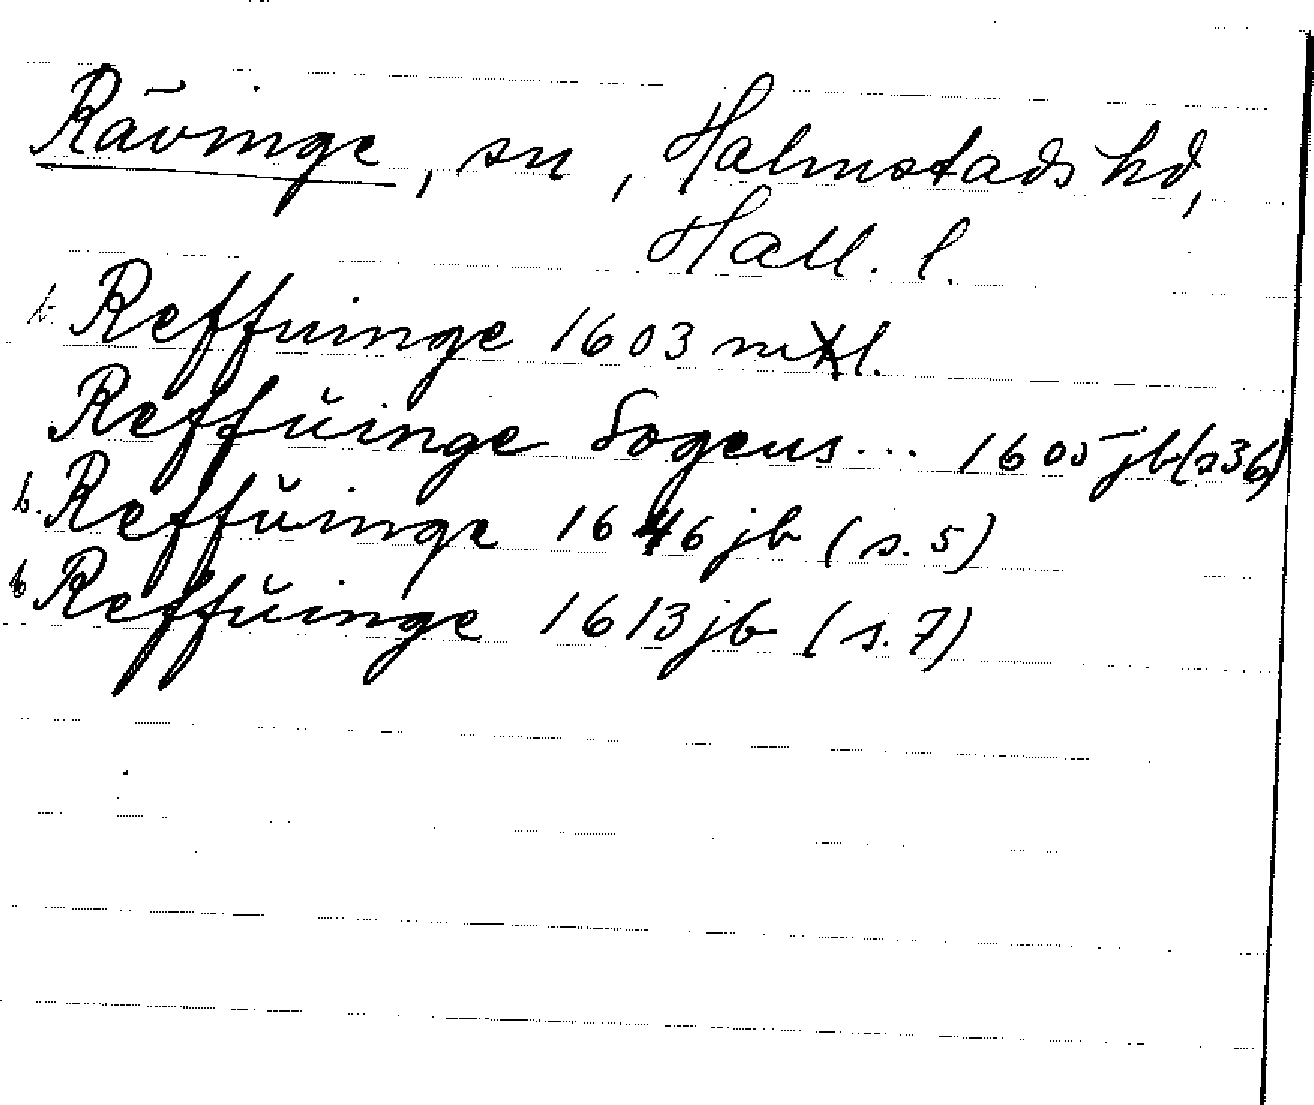 Rävinge, sn, Halmstads hd,
Hall. l.
t. Reffuinge 1603 mtl.
Reffŭinge Sogens... 1605 jb (s 36)
b. Reffŭinge 1646 jb (s. 5)
b Reffŭinge 1613 jb (s. 7)